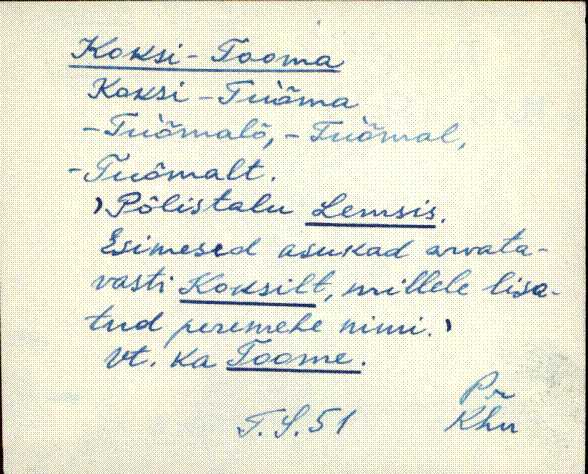 Koksi-Tooma
Koksi-Tuõma
-Tuõmalõ, -Tuõmal,
-Tuõmalt.
)Põlistalu Lemsis.
Esimesed asukad arvata-
vasti Koksilt, millele lisa-
tud peremehe nimi.)
Vt. ka Toome.
Pr
T.S.51 Khn